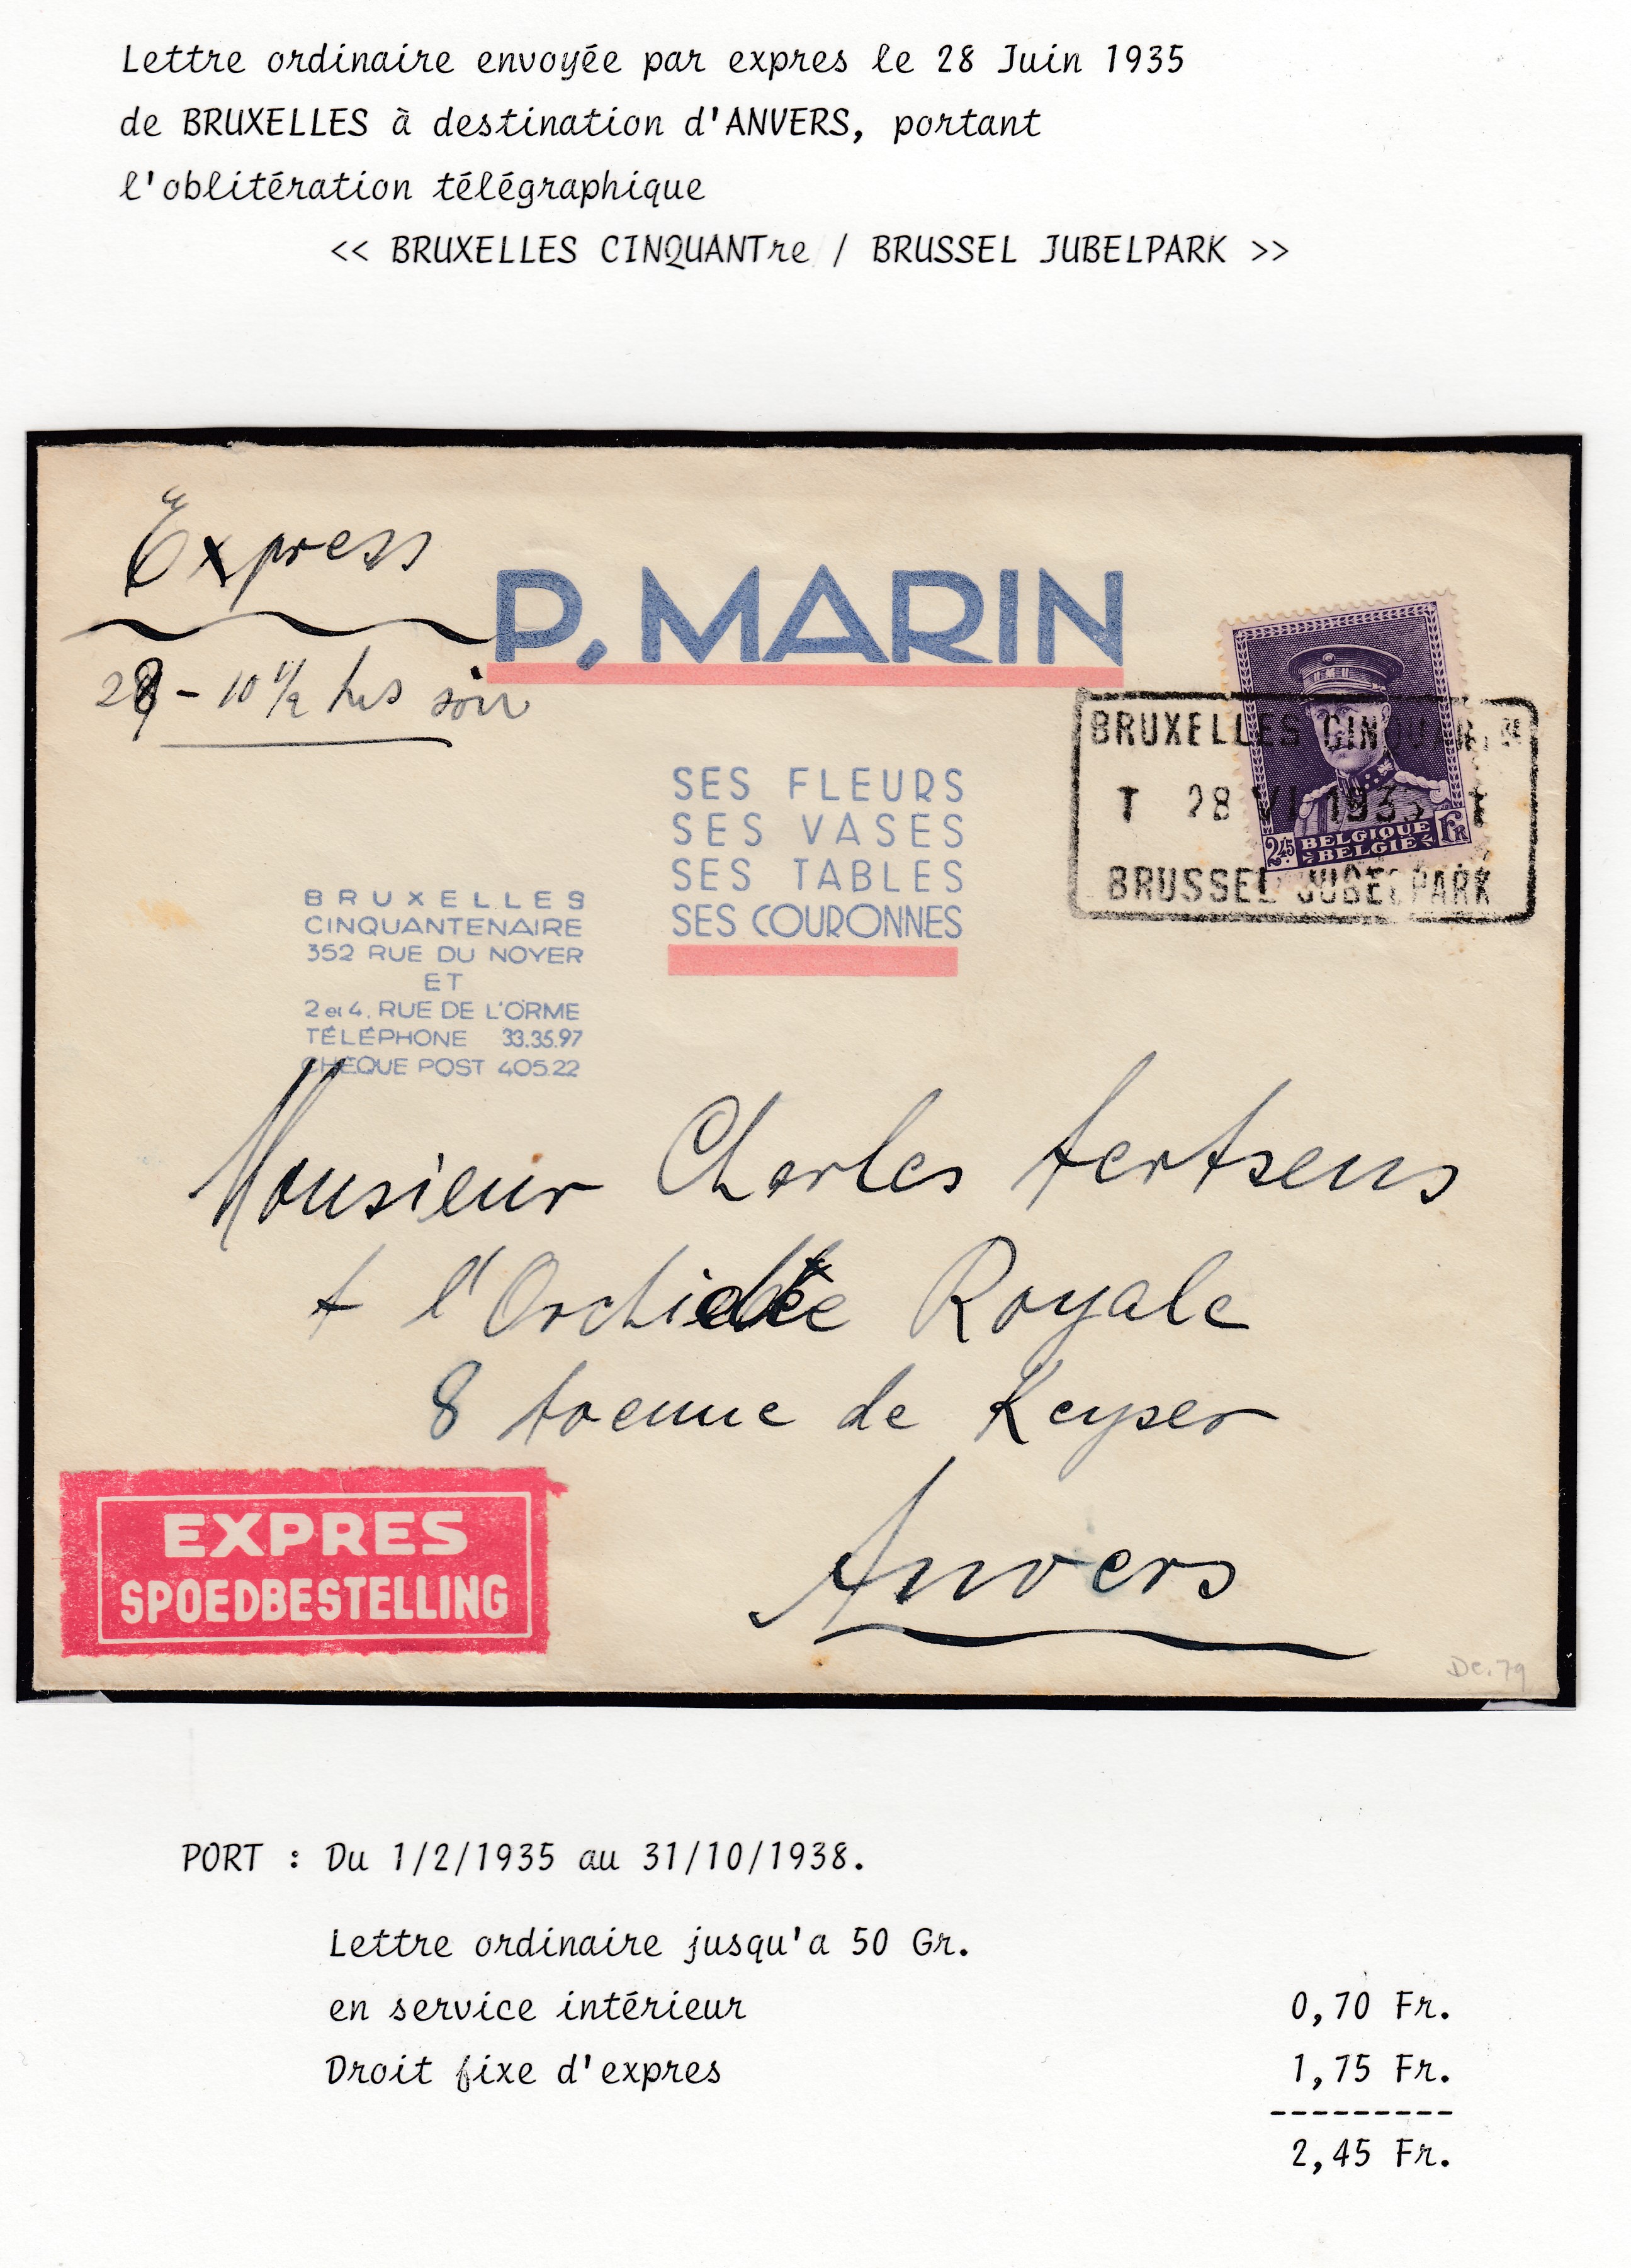 Lettre ordinaire envoyée par expres le 28 Juin 1935
de BRUXELLES à destination d'ANVERS, portant
l'oblitération télégraphique
<< BRUXELLES CINQUANTre / BRUSSEL JUBELPARK >>
Express
28 - 10 1/2 hrs soir
P. MARIN
SES FLEURS
SES VASES
SES TABLES
SES COURONNES
BRUXELLES
CINQUANTENAIRE
352 RUE DU NOYER
ET
2 et 4. RUE DE L'ORME
TÉLÉPHONE 33.35.97
CHÈQUE POST 405.22
2.45 BELGIQUE FR
BELGIË
BRUXELLES CINQUANTRE
T 28 VI 1935 T
BRUSSEL JUBELPARK
Monsieur Charles Aertsens
A l'Orchidée Royale
8 Avenue de Keyser
Anvers
EXPRES
SPOEDBESTELLING
De.79
PORT : Du 1/2/1935 au 31/10/1938.
Lettre ordinaire jusqu'a 50 Gr.
en service intérieur 0,70 Fr.
Droit fixe d'expres 1,75 Fr.
---------
2,45 Fr.